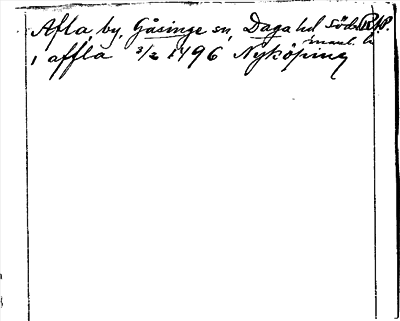 Afla, by, Gåsinge sn, Daga hd Söd
i affla 3/2 1496 Nyköping